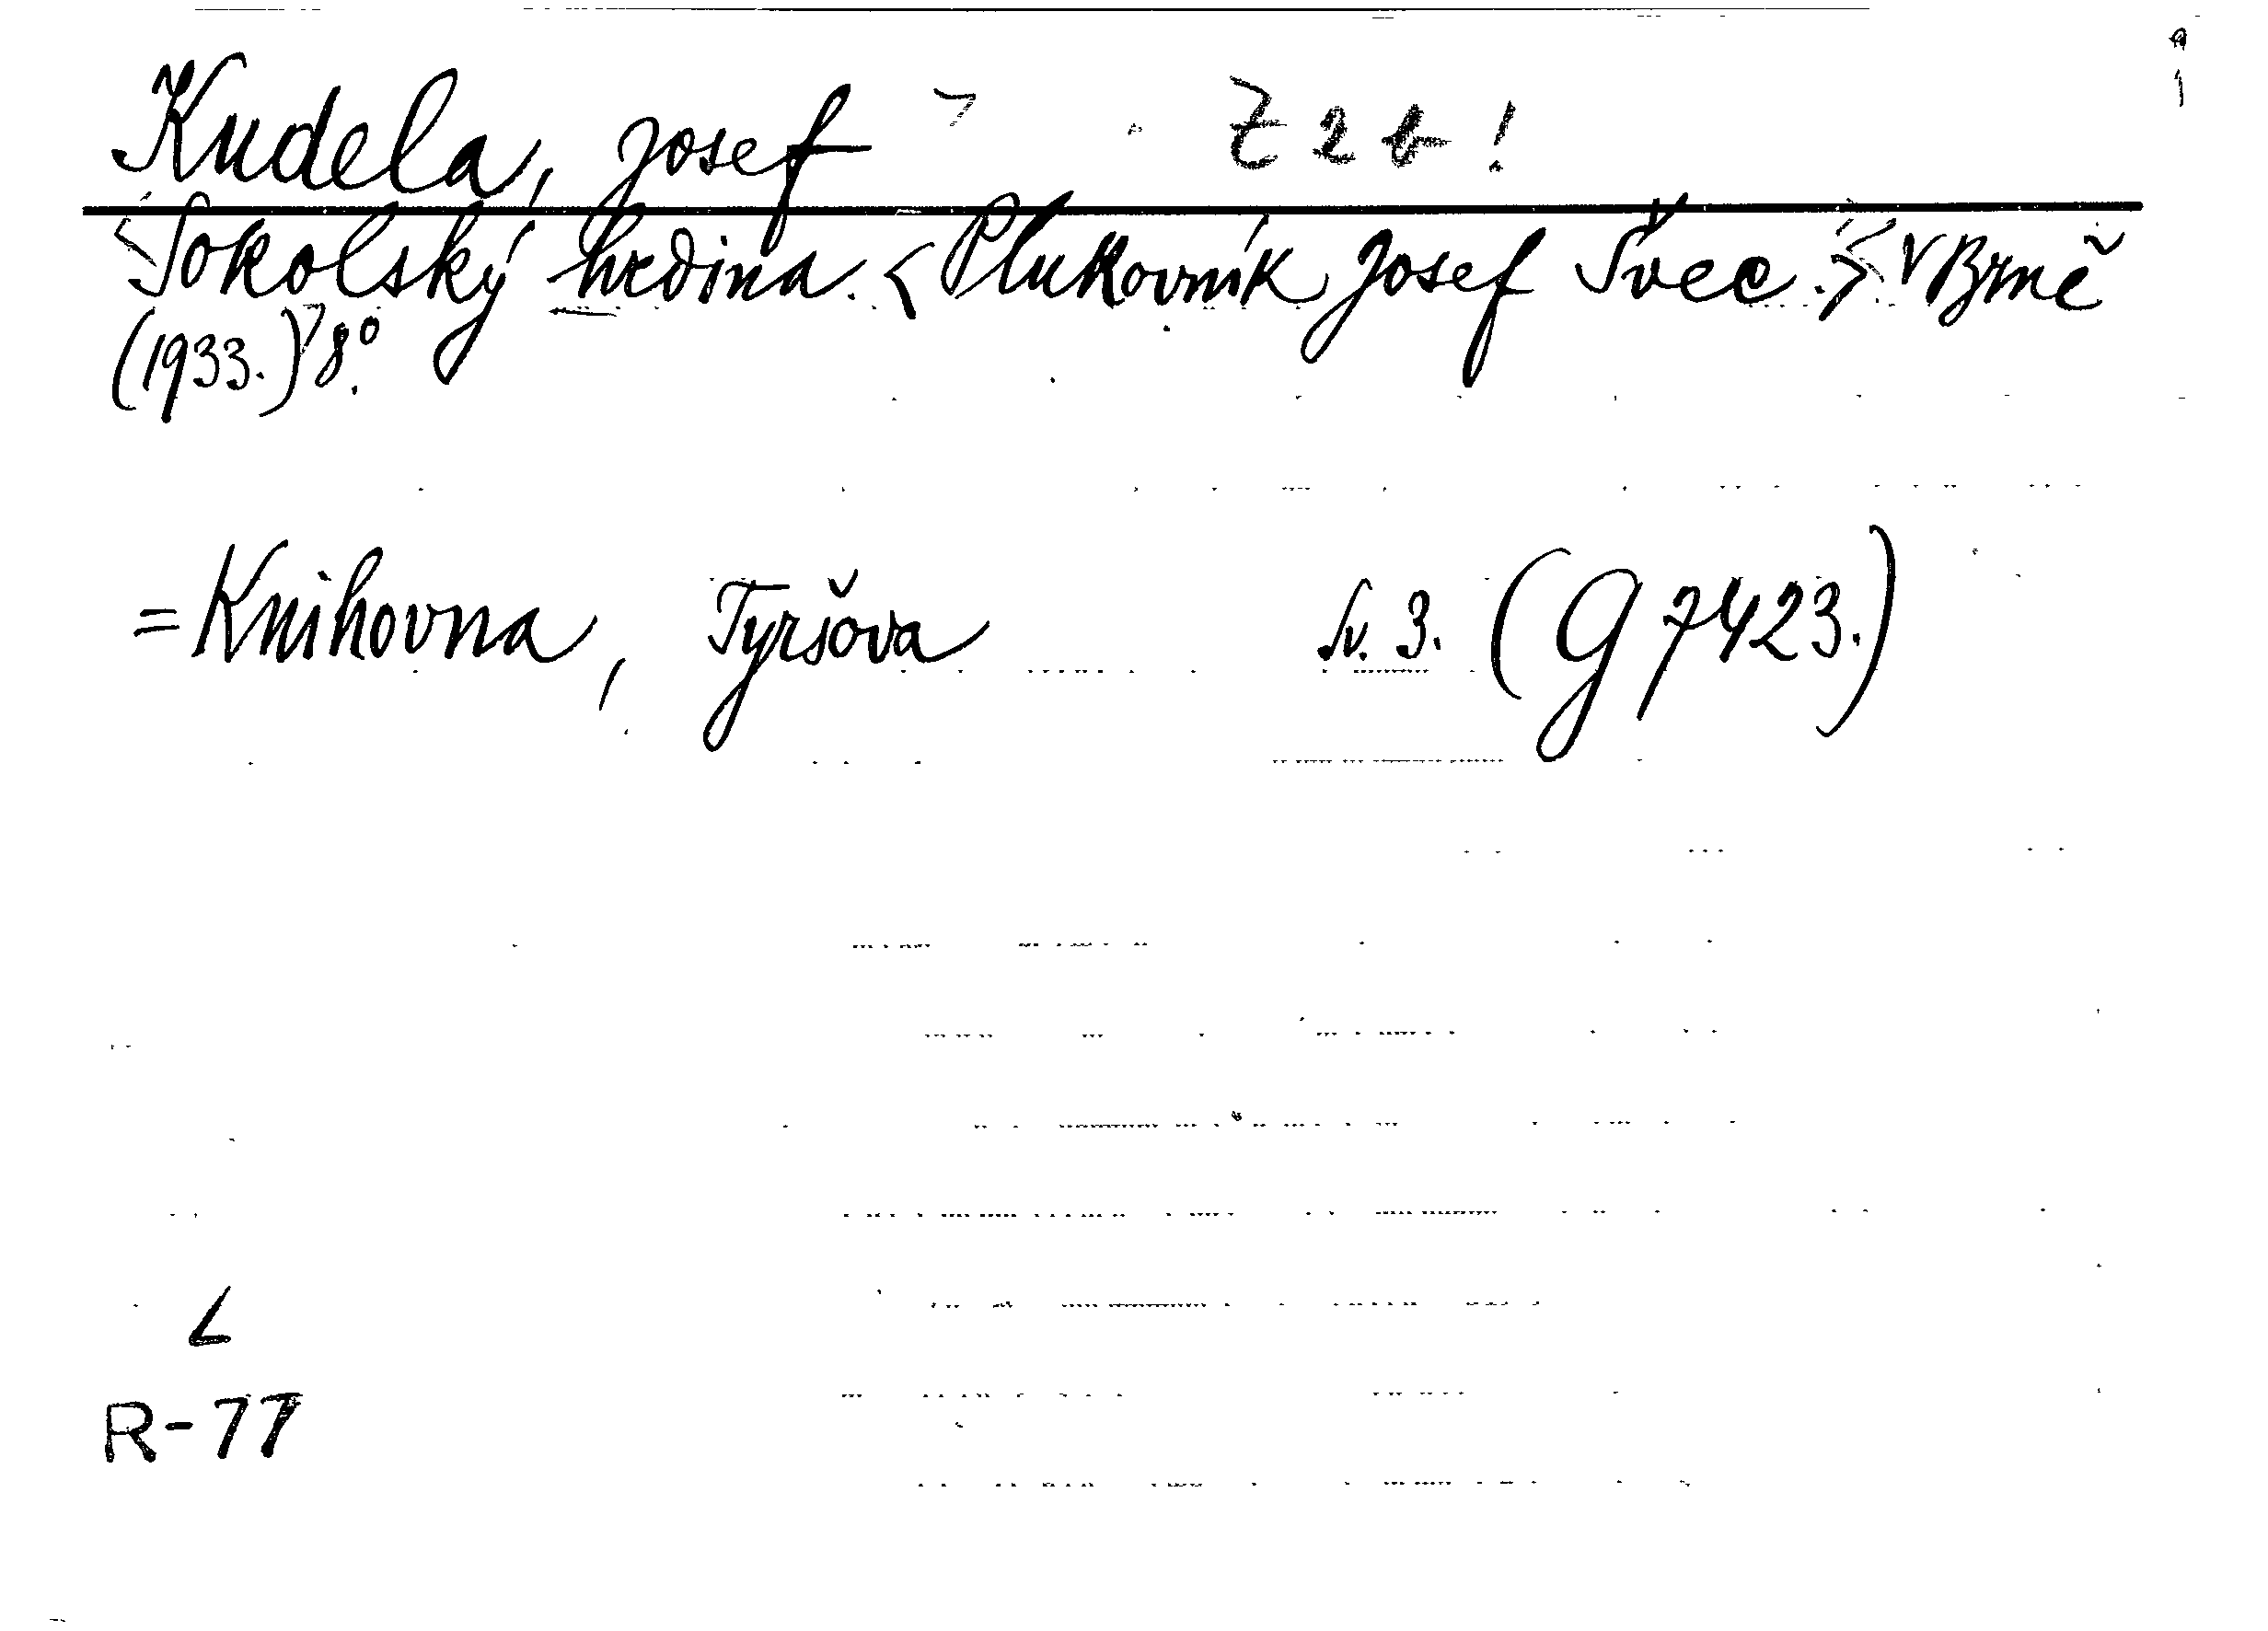 Kudela, Josef Z 2 b!
Sokolský hrdina. <Plukovník Josef Švec.> V Brně
(1933.) 8°.
= Knihovna, Tyršova Sv. 3. (G 7423.)
L
R-77